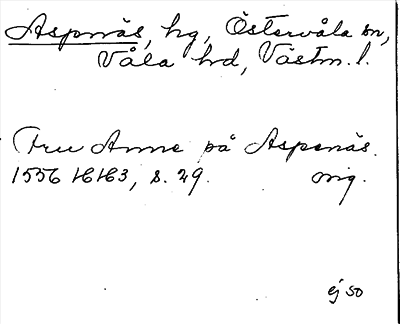 Aspnäs, hg, Östervåla sn,
Våla hd, Västm. l.
Fru Anne på Aspenäs.
1556 16163, s. 29. orig.
ej so